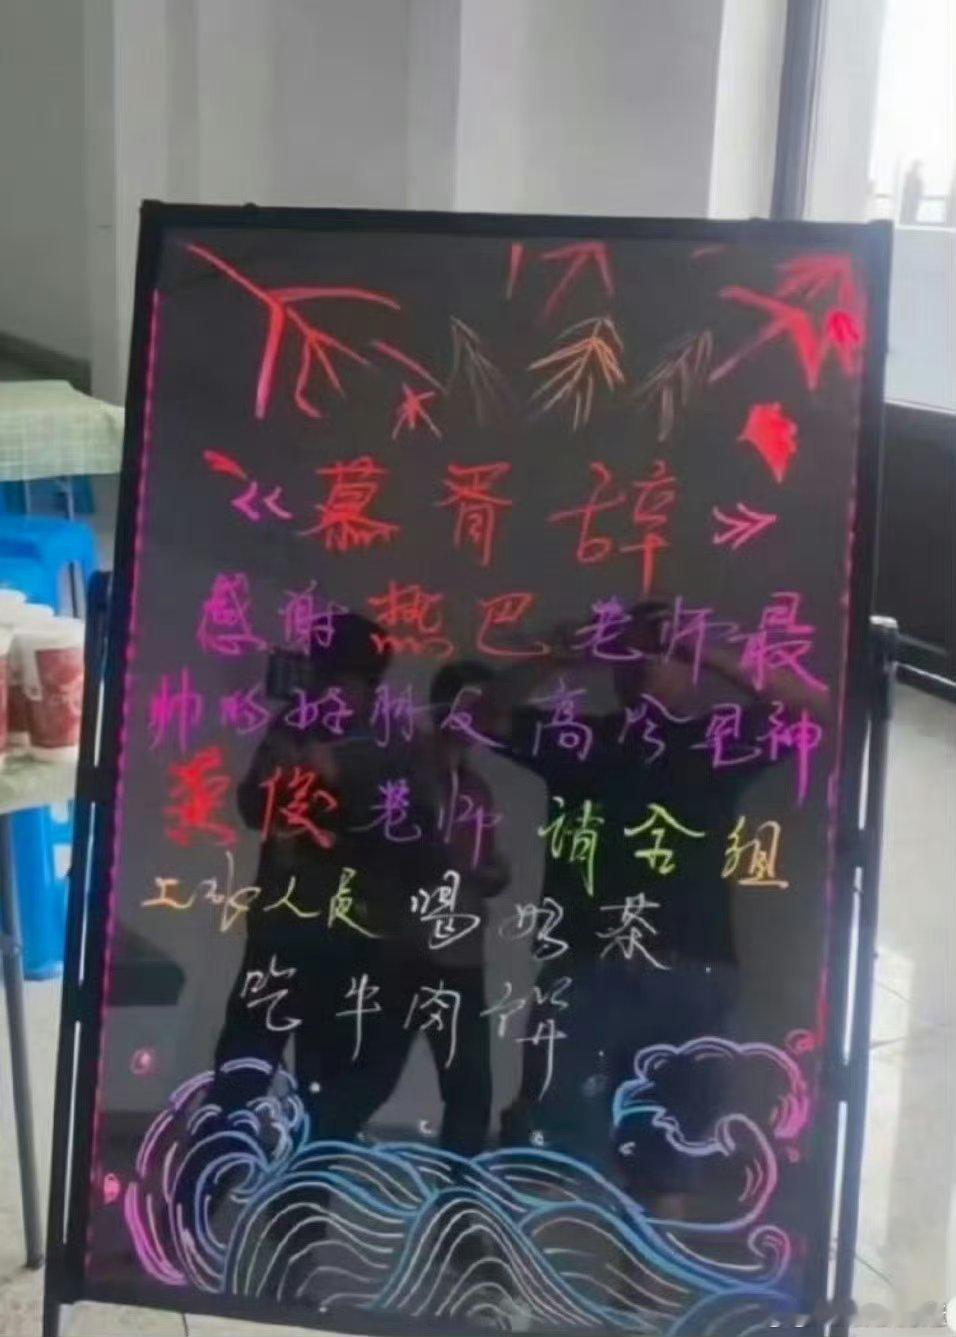 《慕胥辞》
感谢热巴老师最
帅的好朋友高冷男神
黄俊老师请全组
工作人员喝奶茶
吃牛肉饼